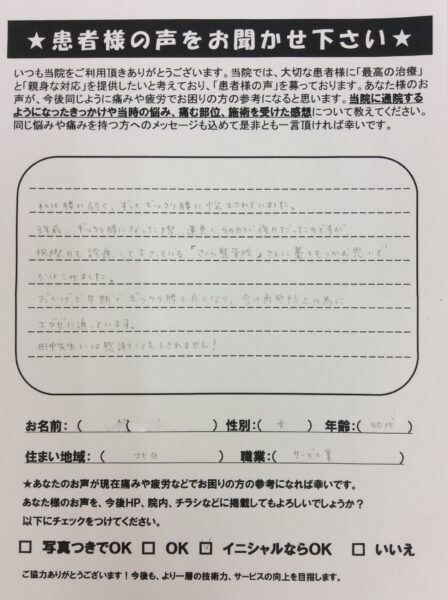 ★患者様の声をお聞かせ下さい★
いつも当院をご利用頂きありがとうございます。当院では、大切な患者様に「最高の治療」
と「親身な対応」を提供したいと考えており、「患者様の声」を募っております。あなた様のお
声が、今後同じように痛みや疲労でお困りの方の参考になると思います。当院に通院する
ようになったきっかけや当時の悩み、痛む部位、施術を受けた感想について教えてください。
同じ悩みや痛みを持つ方へのメッセージも込めて是非とも一言頂ければ幸いです。
私は腰が弱く、ずっとギックリ腰に悩まされていました。
3年前、ギックリ腰になった際、運悪くその日が祝日だったのですが
祝祭日も診療して下さっている「さくら整骨院」さんに藁をもつかむ思いで
かけこみました。
おかげで早期でギックリ腰も良くなり、今は再発防止の為に
エグゼに通っています。
田中先生には感謝してもしきれません!
お名前:( ) 性別:(女) 年齢:(40代)
住まい地域:( ) 職業:(サービス業)
★あなたのお声が現在痛みや疲労などでお困りの方の参考になれば幸いです。
あなた様のお声を、今後HP、院内、チラシなどに掲載してもよろしいでしょうか?
以下にチェックをつけてください。
□ 写真つきでOK □ OK ☑ イニシャルならOK □ いいえ
ご協力ありがとうございます!今後も、より一層の技術力、サービスの向上を目指します。